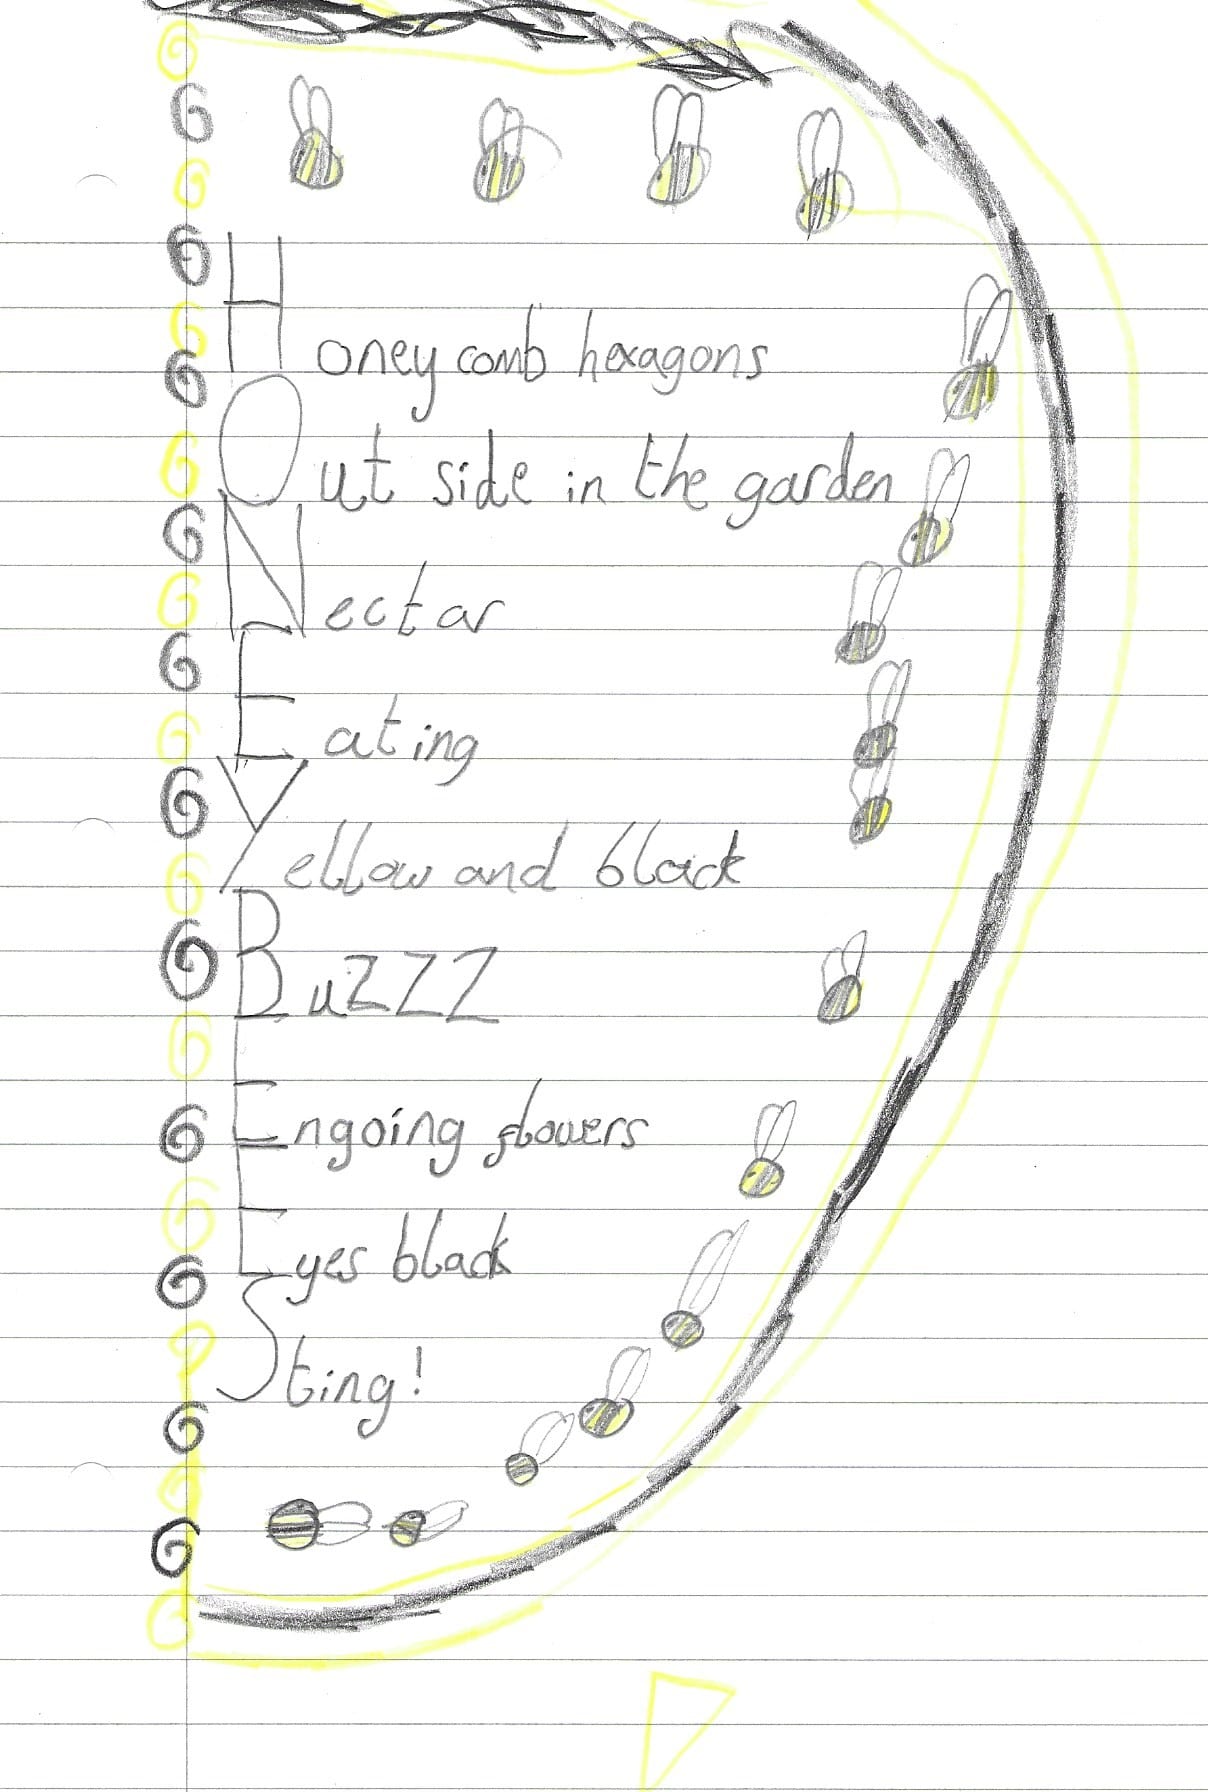 Honey comb hexagons
Out side in the garden
Nectar
Eating
Yellow and black
BuZZZ
Engoing flowers
Eyes black
Sting!